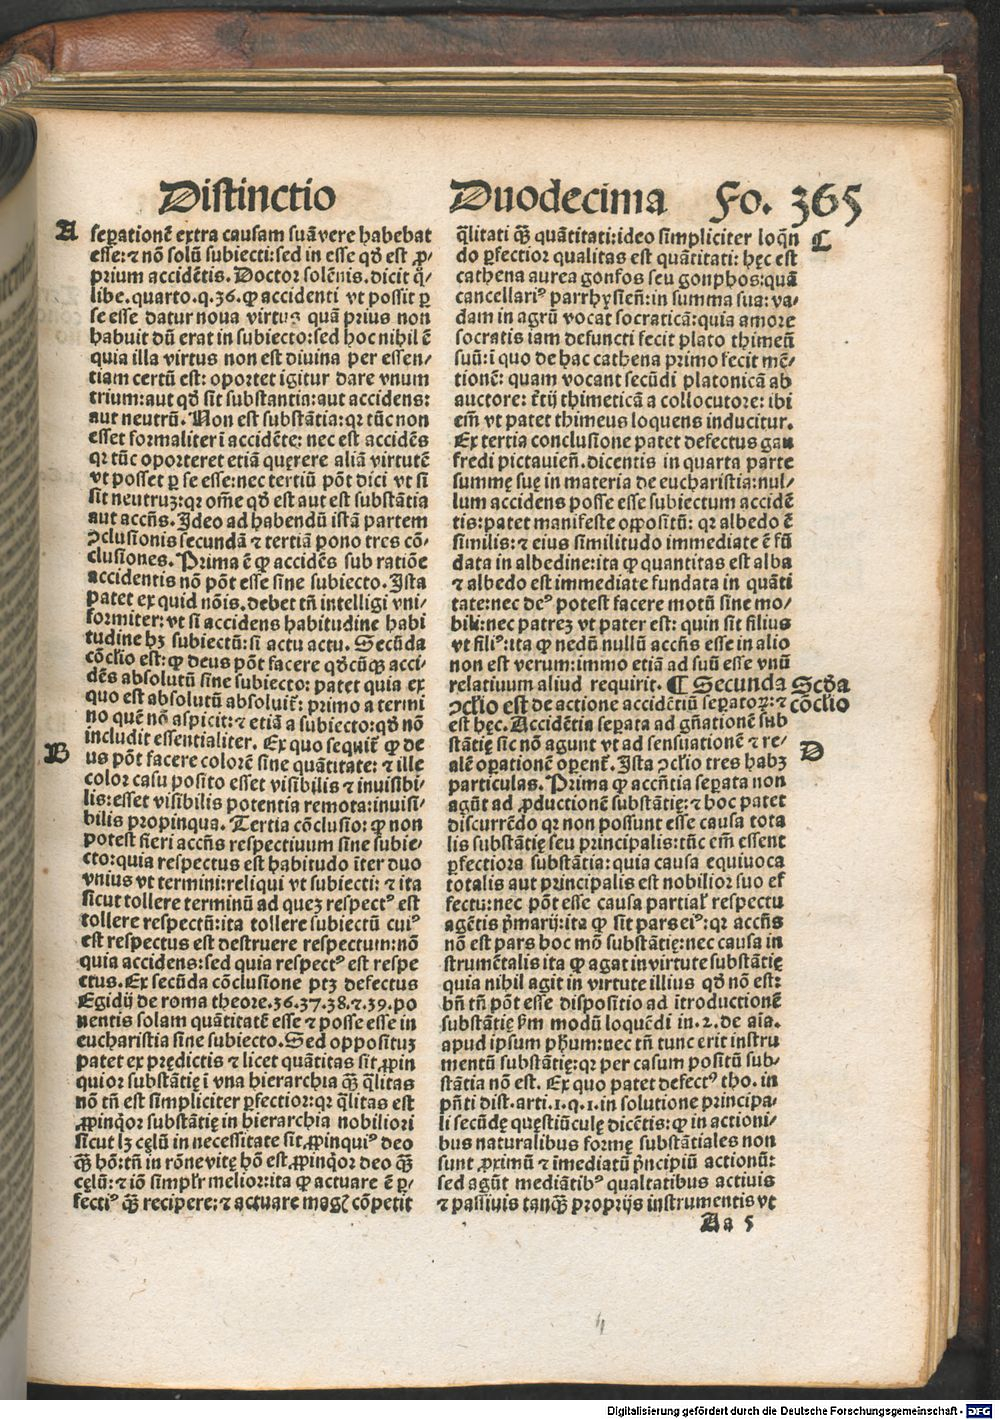 Distinctio Duodecima Fo. 365
A
seꝑationē extra causam suā vere habebat
esse: ⁊ nō solū subiecti: sed in esse qđ est ꝓ-
prium accidētis. Doctor solēnis. dicit q̄-
libe. quarto. q. 36. ꝙ accidenti vt possit ꝑ
se esse datur noua virtus quā prius non
habuit dū erat in subiecto: sed hoc nihil ē
quia illa virtus non est diuina per essen-
tiam certū est: oportet igitur dare vnum
trium: aut qđ sit substantia: aut accidens:
aut neutrū. Non est substātia: qꝛ tūc non
esset formaliter ī accidēte: nec est accidēs
qꝛ tūc oporteret etiā quęrere aliā virtutē
vt posset ꝑ se esse: nec tertiū pōt dici vt si
sit neutruꝫ: qꝛ om̄e qđ est aut est substātia
aut accn̄s. Ideo ad habendū istā partem
ꝯclusionis secundā ⁊ tertiā pono tres cō-
clusiones. Prima ē ꝙ accidēs sub ratiōe
accidentis nō pōt esse sine subiecto. Ista
patet ex quid nōis. debet tn̄ intelligi vni-
formiter: vt si accidens habitudine habi
tudine hꝫ subiectū: si actu actu. Secūda
cōcl̄io est: ꝙ deus pōt facere qđcūqꝫ acci-
dēs absolutū sine subiecto: patet quia ex
quo est absolutū absoluit᷑: primo a termi
no quē nō aspicit: ⁊ etiā a subiecto: qđ nō
includit essentialiter. Ex quo sequit᷑ ꝙ de
B
us pōt facere colorē sine quātitate: ⁊ ille
color casu posito esset visibilis ⁊ inuisibi-
lis: esset visibilis potentia remota: inuisi-
bilis propinqua. Tertia cōclusio: ꝙ non
potest fieri accn̄s respectiuum sine subie-
cto: quia respectus est habitudo īter duo
vnius vt termini: reliqui vt subiecti: ⁊ ita
sicut tollere terminū ad quez respectꝰ est
tollere respectū: ita tollere subiectū cuiꝰ
est respectus est destruere respectum: nō
quia accidens: sed quia respectꝰ est respe
ctus. Ex secūda cōclusione ptꝫ defectus
Egidij de roma theore. 36. 37. 38. ⁊. 39. po
nentis solam quātitatē esse ⁊ posse esse in
eucharistia sine subiecto. Sed opposituꝫ
patet ex prędictis ⁊ licet quātitas sit ꝓpin
quior substātię ī vna hierarchia qꝫ̄ q̄litas
nō tn̄ est simpliciter ꝑfectior: qꝛ q̄litas est
ꝓpinq̊or substātię in hierarchia nobiliori
sicut lꝫ cęlū in necessitate sit ꝓpinquiꝰ deo
qꝫ̄ hō: tn̄ in rōne vitę hō est ꝓpinq̊or deo qꝫ̄
cęlū: ⁊ iō simpl̄r melior: ita ꝙ actuare ē ꝑ-
fectiꝰ qꝫ̄ recipere: ⁊ actuare magꝭ cōpetit
q̄litati qꝫ̄ quātitati: ideo simpliciter loq̄n
C
do ꝑfectior qualitas est quātitati: hęc est
cathena aurea gonfos seu gonphos: quā
cancellariꝰ parrhysień: in summa sua: va-
dam in agrū vocat socraticā: quia amore
socratis iam defuncti fecit plato thimeū
suū: ī quo de hac cathena primo fecit mē-
tionē: quam vocant secūdi platonicā ab
auctore: t̄tij thimeticā a collocutore: ibi
em̄ vt patet thimeus loquens inducitur.
Ex tertia conclusione patet defectus gau
fredi pictauień. dicentis in quarta parte
summę suę in materia de eucharistia: nul-
lum accidens posse esse subiectum accidē
tis: patet manifeste oꝓpositū: qꝛ albedo ē
similis: ⁊ eius similitudo immediate ē fū
data in albedine: ita ꝙ quantitas est alba
⁊ albedo est immediate fundata in quāti
tate: nec deꝰ potest facere motū sine mo-
bili: nec patreꝫ vt pater est: quin sit filius
vt filiꝰ: ita ꝙ nedū nullū accn̄s esse in alio
non est verum: immo etiā ad suū esse vnū
relatiuum aliud requirit. ¶ Secunda
Scd̄a cōcl̄io
ꝯcl̄io est de actione accidētiū seꝑatoꝝ: ⁊
est hęc. Accidētia seꝑata ad gn̄ationē sub
D
stātię sic nō agunt vt ad sensuationē ⁊ re-
alē oꝑationē oꝑent᷑. Ista ꝯcl̄io tres habꝫ
particulas. Prima ꝙ accn̄tia seꝑata non
agūt ad ꝓductionē substātię: ⁊ hoc patet
discurrēdo qꝛ non possunt esse causa tota
lis substātię seu principalis: tūc em̄ essent
ꝑfectiora substātia: quia causa equiuoca
totalis aut principalis est nobilior suo ef
fectu: nec pōt esse causa partial᷑ respectu
agētis p̄marij: ita ꝙ sit pars eiꝰ: qꝛ accn̄s
nō est pars hoc mō substātię: nec causa in
strumētalis ita ꝙ agat in virtute substātię
quia nihil agit in virtute illius qđ nō est:
bn̄ tn̄ pōt esse dispositio ad ītroductionē
substātię ẜm modū loquēdi in. 2. de aīa.
apud ipsum pħum: nec tn̄ tunc erit instru
mentū substātię: qꝛ per casum positū sub-
stātia nō est. Ex quo patet defectꝰ tho. in
pn̄ti dist. arti. 1. q. 1. in solutione principa-
li secūdę quęstiūculę dicētis: ꝙ in actioni-
bus naturalibus formę substātiales non
sunt ꝓximū ⁊ īmediatū p̄ncipiū actionū:
sed agūt mediātibꝰ qualtatibus actiuis
⁊ passiuis tanqꝫ̄ proprijs instrumentis vt
Aa 5
Digitalisierung gefördert durch die Deutsche Forschungsgemeinschaft - DFG